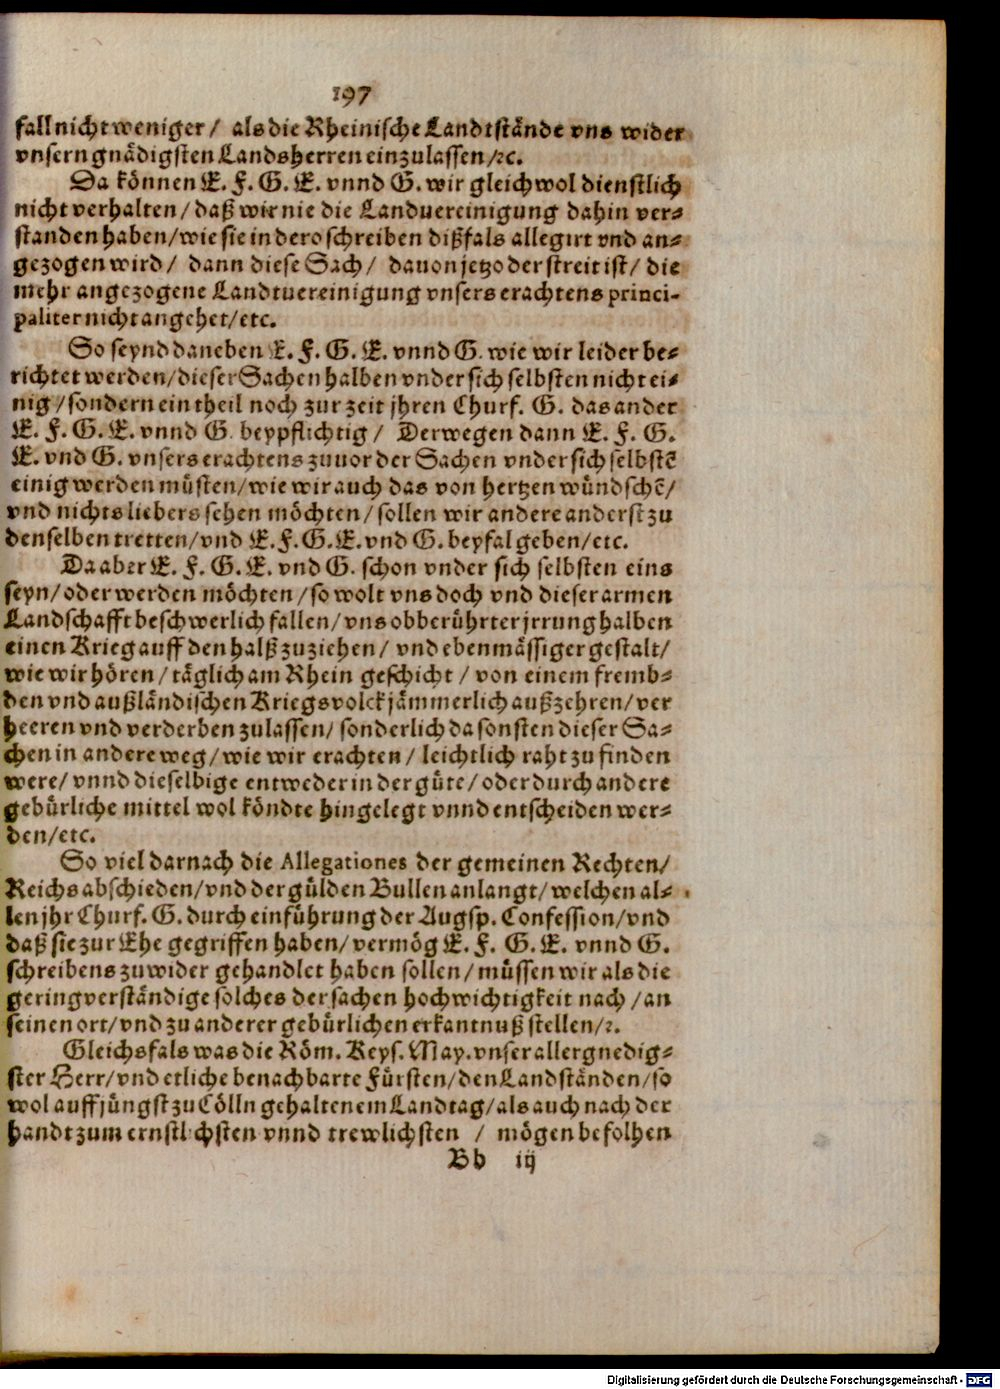 197
fall nicht weniger/ als die Rheinische Landtstände vns wider
vnsern gnädigsten Landsherren einzulassen/ꝛc.
Da können E. F. G. E. vnnd G. wir gleichwol dienstlich
nicht verhalten/ daß wir nie die Landuereinigung dahin ver-
standen haben/ wie sie in dero schreiben dißfals allegirt vnd an-
gezogen wird/ dann diese Sach/ dauon jetzo der streit ist/ die
mehr angezogene Landtuereinigung vnsers erachtens princi-
paliter nicht angehet/etc.
So seynd daneben E. F. G. E. vnnd G. wie wir leider be-
richtet werden/ dieser Sachen halben vnder sich selbsten nicht ei-
nig/ sondern ein theil noch zur zeit jhren Churf. G. das ander
E. F. G. E. vnnd G. beypflichtig/ Derwegen dann E. F. G.
E. vnd G. vnsers erachtens zuuor der Sachen vnder sich selbstē
einig werden müsten/ wie wir auch das von hertzen wündschē/
vnd nichts liebers sehen möchten/ sollen wir andere anderst zu
denselben tretten/ vnd E. F. G. E. vnd G. beyfal geben/etc.
Da aber E. F. G. E. vnd G. schon vnder sich selbsten eins
seyn/ oder werden möchten/ so wolt vns doch vnd dieser armen
Landschafft beschwerlich fallen/ vns obberührter jrrung halben
einen Krieg auff den halß zuziehen/ vnd ebenmässiger gestalt/
wie wir hören/ täglich am Rhein geschicht/ von einem fremb-
den vnd außländischen Kriegsvolck jämmerlich außzehren/ ver
heeren vnd verderben zulassen/ sonderlich da sonsten dieser Sa-
chen in andere weg/ wie wir erachten/ leichtlich raht zu finden
were/ vnnd dieselbige entweder in der güte/ oder durch andere
gebürliche mittel wol köndte hingelegt vnnd entscheiden wer-
den/etc.
So viel darnach die Allegationes der gemeinen Rechten/
Reichsabschieden/ vnd der gülden Bullen anlangt/ welchen al-
len jhr Churf. G. durch einführung der Augsp. Confession/ vnd
daß sie zur Ehe gegriffen haben/ vermög E. F. G. E. vnnd G.
schreibens zuwider gehandlet haben sollen/ müssen wir als die
geringverständige solches der sachen hochwichtigkeit nach/ an
seinen ort/ vnd zu anderer gebürlichen erkantnuß stellen/ꝛ.
Gleichsfals was die Röm. Keys. May. vnser allergnedig-
ster Herr/ vnd etliche benachbarte Fürsten/ den Landständen/ so
wol auff jüngst zu Cölln gehaltenem Landtag/ als auch nach der
handt zum ernstlichsten vnnd trewlichsten / mögen befolhen
Bb iij
Digitalisierung gefördert durch die Deutsche Forschungsgemeinschaft - DFG